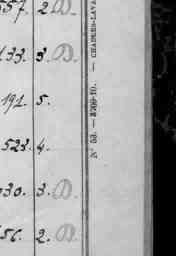 557. 2 D.
133. 3 D.
191. 5.
523. 4.
030. 3. D.
56. 2. D.
N° 53. — 3200-10. — CHARLES-LAVA